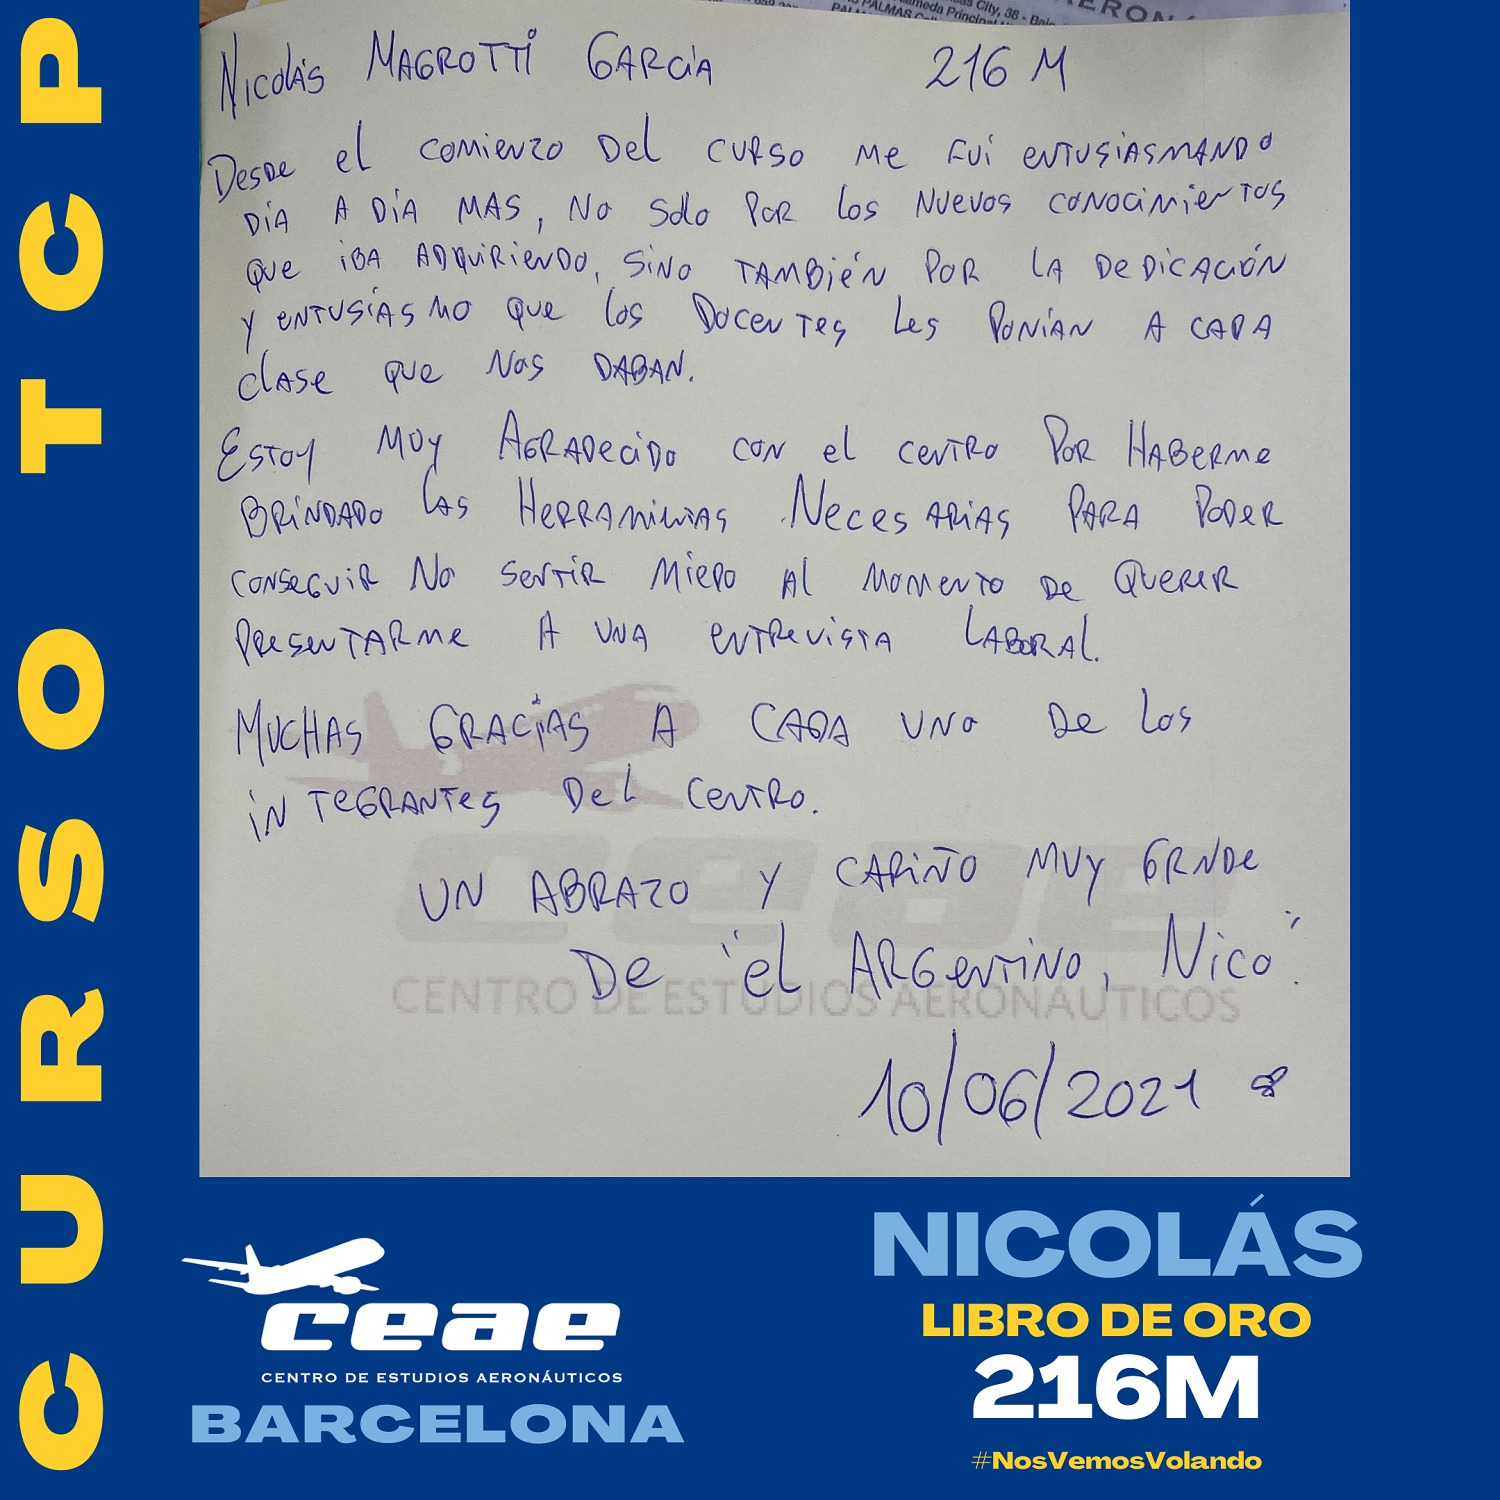 CURSO TCP
Nicolás MAGROTTi GARCíA 216 M
Desde el comienzo Del curso me fui entusiasmando
día a día mas, no solo por los nuevos conocimientos
que iba adquiriendo, sino también por la dedicación
y entusíasmo que los docentes les ponían a cada
clase que nos daban.
Estoy muy agradecido con el centro por haberme
brindado las herramientas necesarias para poder
conseguir no sentir miedo al momento de querer
presentarme a una entrevista laboral.
Muchas gracias a cada uno de los
integrantes del centro.
un abrazo y cariño muy grnde
De "el Argentino, Nico".
10/06/2021
ceae
CENTRO DE ESTUDIOS AERONAUTICOS
ceae
CENTRO DE ESTUDIOS AERONÁUTICOS
BARCELONA
NICOLÁS
LIBRO DE ORO
216M
#NosVemosVolando